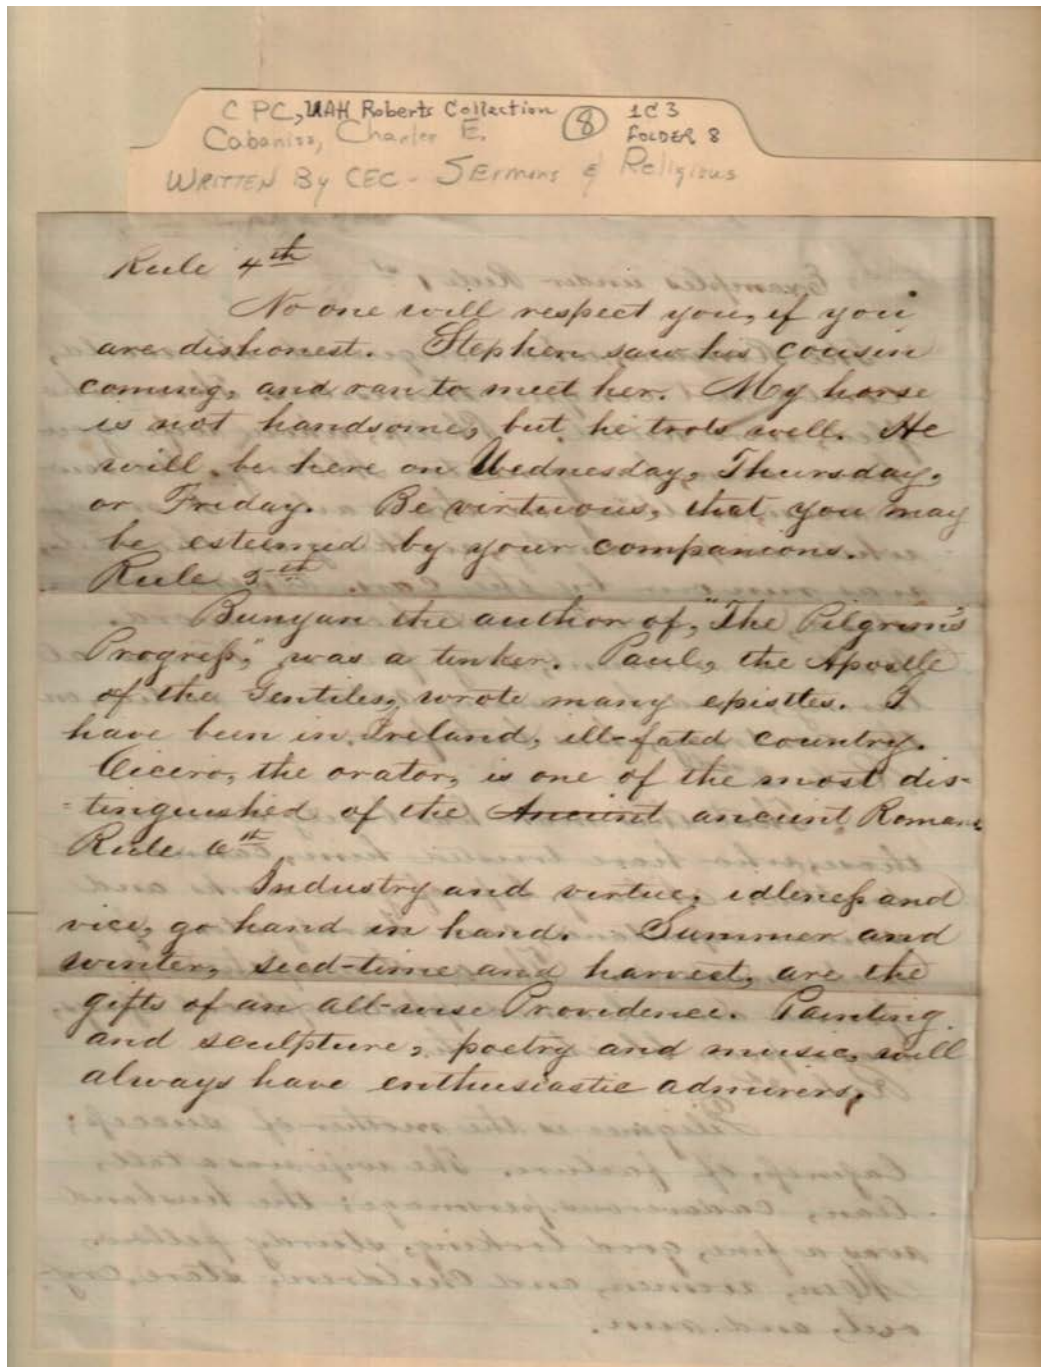 C PC, UAH Roberts Collection 8 1C3
Cabaniss, Charles E. FOLDER 8
WRITTEN By CEC - SErmons & Religious
Rule 4th
No one will respect you, if you
are dishonest. Stephen saw his cousin
coming, and ran to meet her. My horse
is not handsome, but he trots well. He
will be here on Wednesday, Thursday,
or Friday. Be virtuous, that you may
be esteemed by your companions.
Rule 5th
Bunyan the author of, "The Pilgrim's
Progress," was a tinker. Paul, the Apostle
of the Gentiles, wrote many epistles. I
have been in Ireland, ill-fated country.
Cicero, the orator, is one of the most dis-
-tinguished of the Ancient ancient Romans
Rule 6th
Industry and virtue, idleness and
vice, go hand in hand. Summer and
winter, seed-time and harvest, are the
gifts of an all-wise Providence. Painting
and sculpture, poetry and music, will
always have enthusiastic admirers.